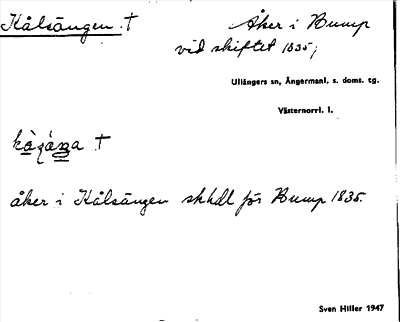 Kålsängen. †
Åker i Bump
vid skiftet 1835;
Ullångers sn, Ångermanl. s. doms. tg.
Västernorrl. l.
†
åker i Kålsängen skhdl för Bump 1835.
Sven Hiller 1947